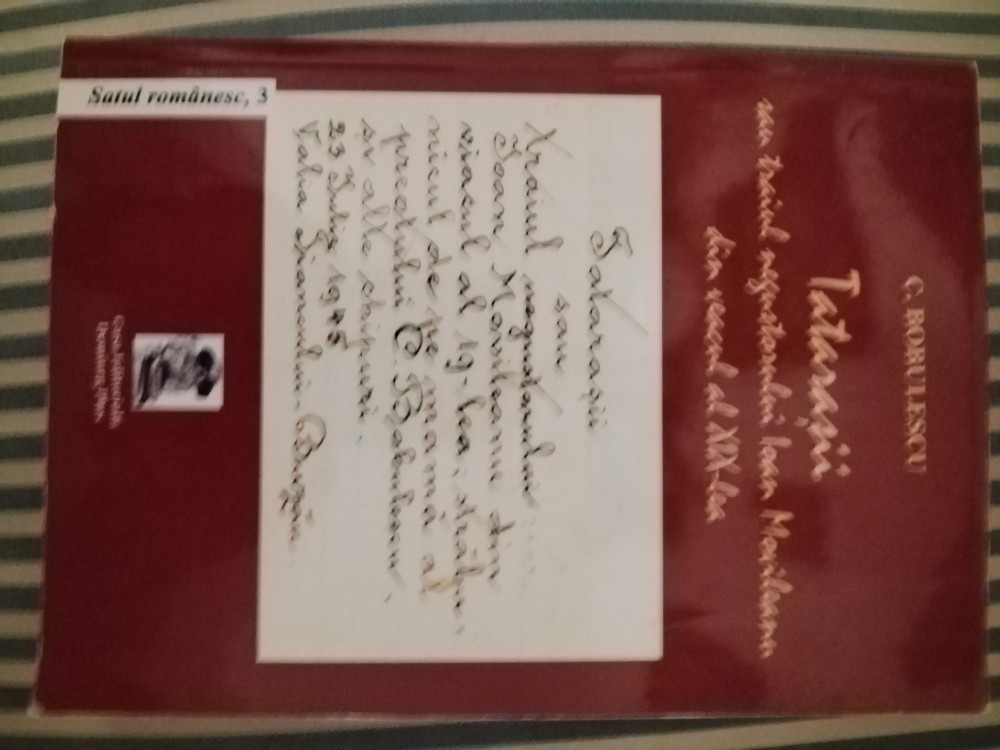 C. BOBULESCU
Tatarașii
sau traiul negustorului Ioan Movileanu
din veacul al XIX-lea
Tatarașii
sau
Traiul negustorului
Ioan Movileanu din
viacul al 19-lea; străbu-
nicul de pe mamă al
preotului C. Bobulescu,
și alte chipuri.
23 Iulie 1945
Valia Buzău.
Satul românesc, 3
Casa Editorială
Demiurg